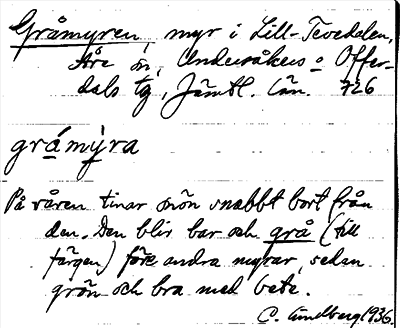 Gråmyren, myr i Lill-Tevedalen,
Åre sn, Undersåkers o Offer-
dals tg, Jämtl. län. 726
grámỳra
På våren tinar snön snabbt bort från
den. Den blir bar och grå (till
färgen) före andra myrar, sedan
grön och bra med bete.
C. Lundberg 1936.